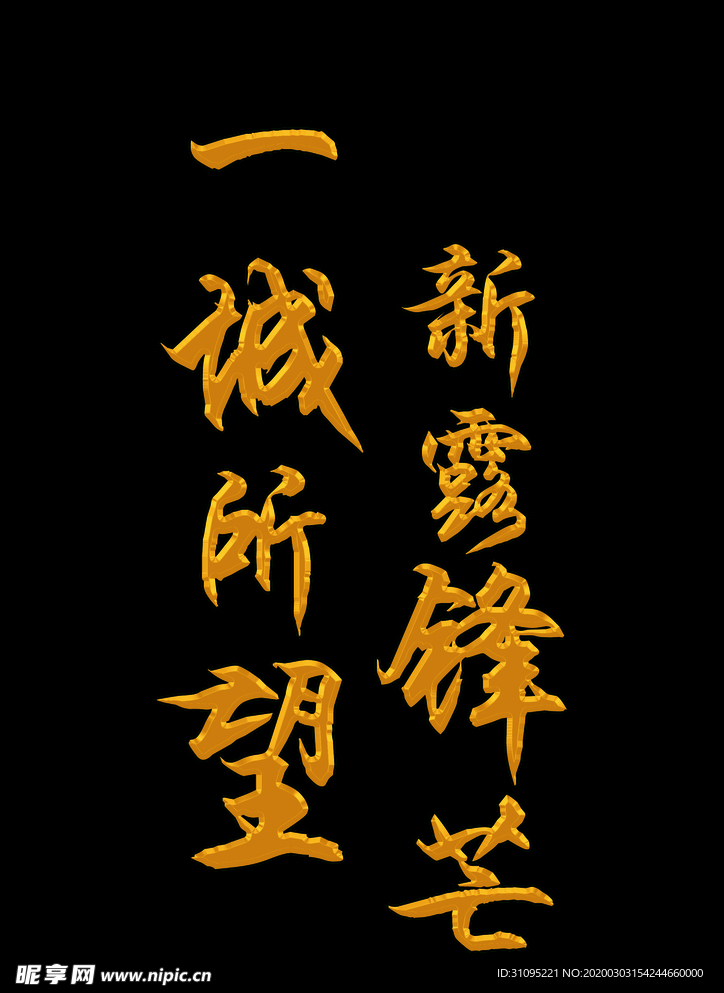 一诚所望
新露锋芒
昵享网 www.nipic.cn
ID:31095221 NO:20200303154244660000